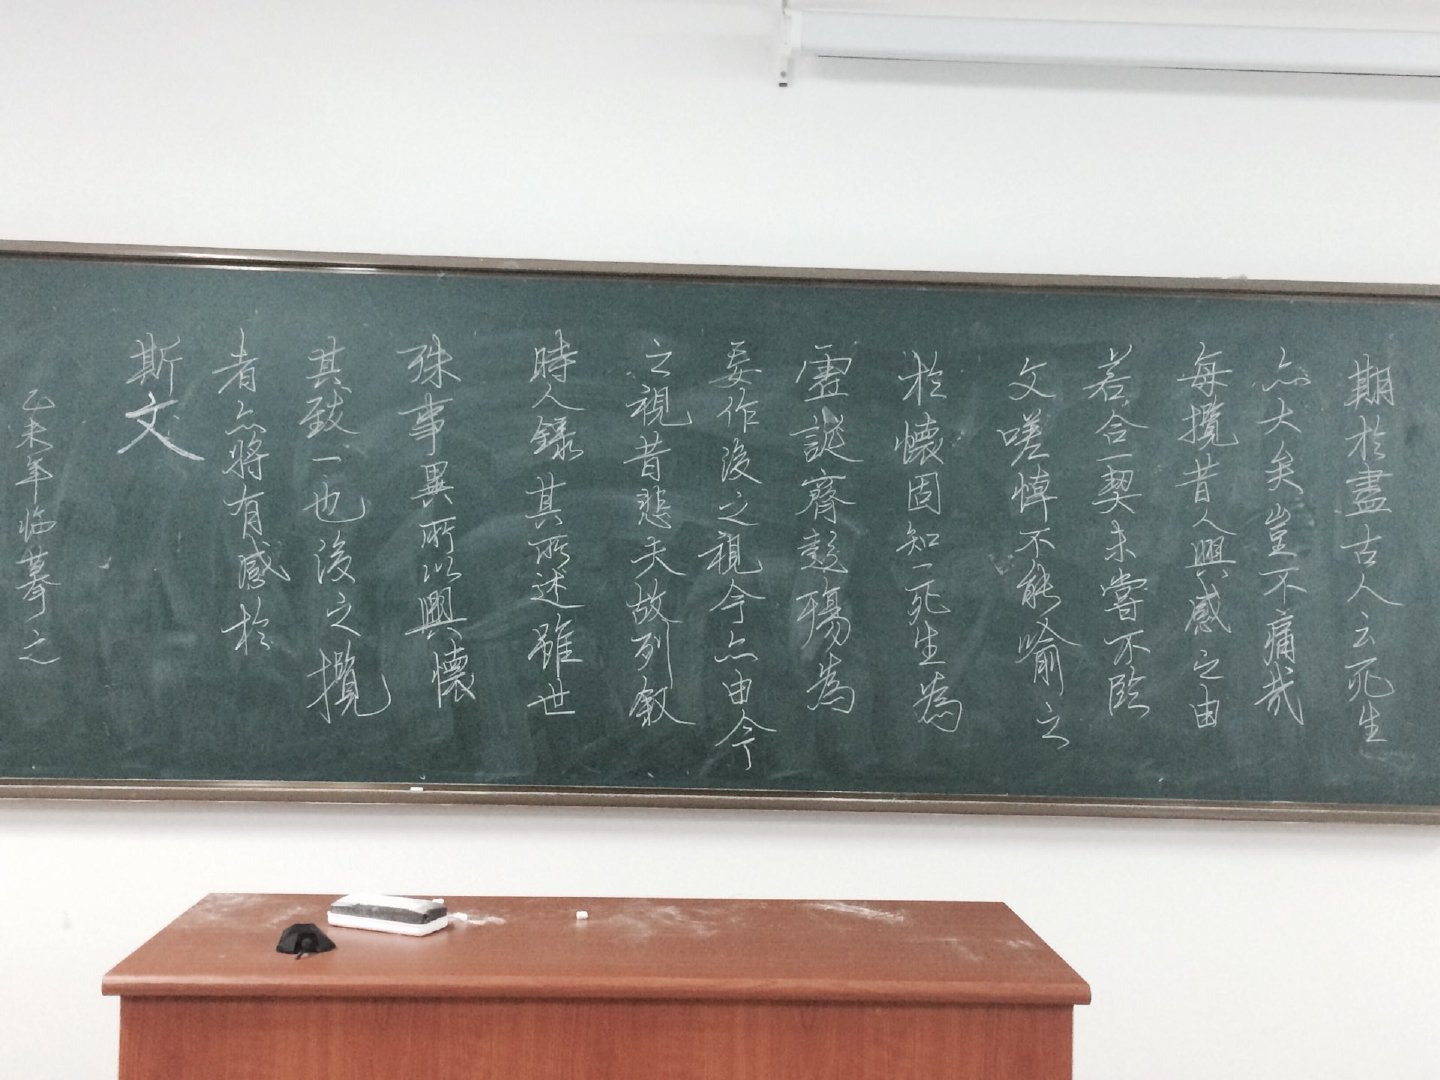 期於盡古人云死生
亦大矣豈不痛哉
每攬昔人興感之由
若合一契未嘗不臨
文嗟悼不能喻之
於懷固知一死生為
虛誕齊彭殤為
妄作後之視今亦由今
之視昔悲夫故列叙
時人錄其所述雖世
殊事異所以興懷
其致一也後之攬
者亦將有感於
斯文
乙未年临摹之